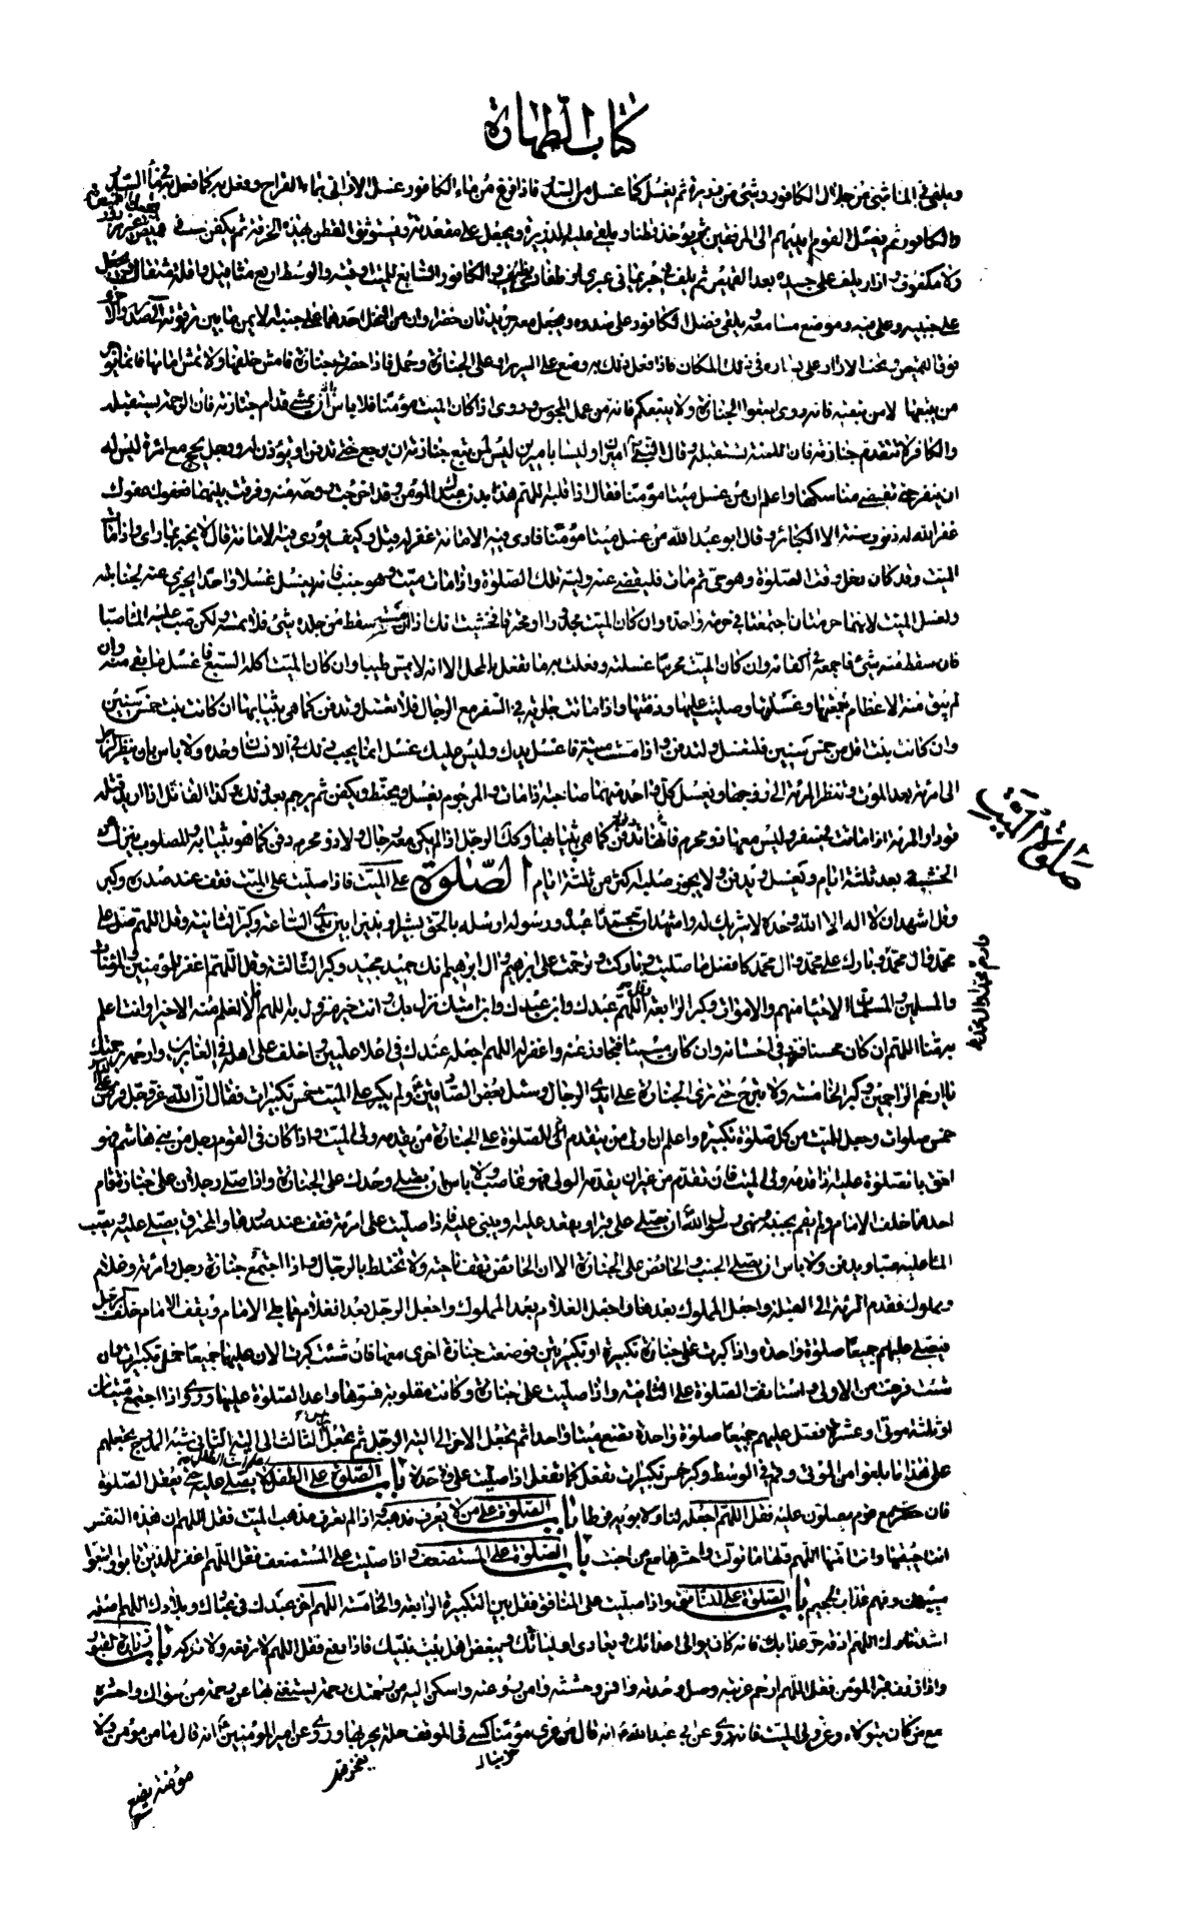 كتاب الطهارة
ويلقى في الماء شيء من جلال الكافور وشيء من ذريرة ثم يغسل كما غسل من السدر فاذا فرغ من ماء الكافور غسل الاواني بماء القراح وفعل به كما فعل في ماء السدر
والكافور ثم يغسل القوم ايديهم الى المرفقين ثم يؤخذ قطنا ويلقى عليه الذريرة ويجعل على مقعدته ويستوثق القطن بهذه الخرقة ثم يكفن في قميص غير مزرور
ولا مكفوف وازار يلف على جسده بعد القميص ثم يلف في حبر يماني عبري او ظفاري نظيف والكافور السابغ للميت وقية والوسط اربع مثاقيل واقله مثقال ويجعل
على جبينه وعلى فيه وموضع مسامعه ويلقى فضل الكافور على صدره ويجعل معه جريدتان خضراوان من النخل احدهما على جنبه الايمن ما بين ترقوته الى صدره والاخرى
فوق القميص وتحت الازار على يساره في ذلك المكان فاذا فعل ذلك به وضع على السرير او على الجنازة وحمل فاذا حضرت جنازة فامش خلفها ولا تمش امامها فانما يؤجر
من يتبعها لا من تتبعه فانه روى اتبعوا الجنازة ولا يتبعكم فانه من عمل المجوس وروى اذا كان الميت مؤمنا فلا باس ان يمشى قدام جنازته فان الرحمة يستقبله
والكافر لا تتقدم جنازته فان اللعنة تستقبله وقال النبي اميران وليسا باميرين ليس لمن تبع جنازة ان يرجع حتى تدفن او يؤذن له ورجل يحج مع امرة ليس له
ان ينفر حتى تقضى مناسكها واعلم ان من غسل ميتا مؤمنا فقال اذا قلبه اللهم هذا بدن عبدك المؤمن وقد اخرجت روحه منه وفرقت بينهما فعفوك عفوك
غفر الله له ذنوب سنة الا الكبائر وقال ابو عبد الله من غسل ميتا مؤمنا فادى فيه الامانة غفر له وقيل وكيف يؤدى فيه الامانة قال لا يخبر بما راى واذا مات
الميت وقد كان دخل وقت الصلوة وهو حي ثم مات فليقضى عنه وليه تلك الصلوة واذا مات ميت وهو جنب فانه يغسل غسلا واحدا يجزى عنه لجنابته
ولغسل الميت لانهما حرمتان اجتمعتا في حرمة واحدة وان كان الميت مجدورا او محترقا فخشيت انك اذا مسسته سقط من جلده شيء فلا تمسه ولكن صب عليه الماء صبا
فان سقط منه شيء فاجمعه في اكفانه وان كان الميت محرما غسلته وفعلت به ما تفعل بالمحل الا انه لا يمس طيبا وان كان الميت اكله السبع فاغسل ما بقي منه وان
لم يبق منه الا عظام جمعتها وغسلتها وصليت عليها ودفنتها واذا ماتت جارية في السفر مع الرجال فلا تغسل وتدفن كما هي بثيابها ان كانت بنت خمس سنين
وان كانت بنت اقل من خمس سنين فلتغسل ولتدفن واذا مسست ميتة فاغسل يدك وليس عليك غسل انما يجب ذلك في الانسان وحده ولا باس بان ينظر الرجل
الى امرته بعد الموت وتنظر المرئة الى زوجها ويغسل كل واحد منهما صاحبه اذا مات والمرجوم يغسل ويحنط ويكفن ثم يرجم بعد ذلك وكذا القاتل اذا اريد قتله
قودا والمرئة اذا ماتت في سفر وليس معها ذو محرم فانها تدفن كما هي بثيابها وكذلك الرجل اذا لم يكن معه رجال ولا ذو محرم دفن كما هو بثيابه والمصلوب ينزل عن
الخشبة بعد ثلثة ايام ويغسل ويدفن ولا يجوز صلبه اكثر من ثلثة ايام الصلوة على الميت فاذا صليت على الميت فقف عند صدره وكبر
وقل اشهد ان لا اله الا الله وحده لا شريك له واشهد ان محمدا عبده ورسوله ارسله بالحق بشيرا ونذيرا بين يدى الساعة وكبر الثانية وقل اللهم صل على
محمد وال محمد وبارك على محمد وال محمد كافضل ما صليت وباركت وترحمت على ابرهيم وال ابرهيم انك حميد مجيد وكبر الثالثة وقل اللهم اغفر للمؤمنين والمؤمنات
والمسلمين والمسلمات الاحياء منهم والاموات وكبر الرابعة وقل اللهم عبدك وابن عبدك وابن امتك نزل بك وانت خير منزول به اللهم انا لا نعلم منه الا خيرا وانت اعلم
به منا اللهم ان كان محسنا فزد في احسانه وان كان مسيئا فتجاوز عنه واغفر له اللهم اجعله عندك في اعلا عليين واخلف على اهله في الغابرين وارحمه برحمتك
يا ارحم الراحمين وكبر الخامسة ولا تبرح حتى ترى الجنازة على ايدى الرجال وسئل بعض الصادقين لم يكبر على الميت خمس تكبيرات فقال ان الله عز وجل فرض على العباد
خمس صلوات وجعل للميت من كل صلوة تكبيرة واعلم ان اولى من يتقدم الى الصلوة على الجنازة من يقدمه ولى الميت واذا كان في القوم رجل من بني هاشم فهو
احق بالصلوة عليه اذا قدمه ولى الميت فان تقدم من غير ان يقدمه الولى فهو غاصب ولا باس ان يصلى وحدك على الجنازة واذا صلى رجلان على جنازة قام
احدهما خلف الامام ولم يقم بجنبه ونهى رسول الله ان يصلى على قبر او يقعد عليه ويبنى عليه فاذا صليت على امرئة فقف عند صدرها والمحترق يصلى عليه ويصب
الماء عليه صبا ويدفن ولا باس ان يصلى الجنب والحائض على الجنازة الا ان الحائض تقف ناحية ولا تختلط بالرجال واذا اجتمع جنازة رجل وامرئة وغلام
ومملوك فقدم المرئة الى القبلة واجعل المملوك بعدها واجعل الغلام بعد المملوك واجعل الرجل بعد الغلام مما يلى الامام ويقف الامام خلف الرجل
فيصلى عليهم جميعا صلوة واحدة واذا كبرت على جنازة تكبيرة او تكبيرتين فوضعت جنازة اخرى معها فان شئت كبرت الان عليهما جميعا خمس تكبيرات وان
شئت فرغت من الاولى واستانفت الصلوة على الثانية واذا صليت على جنازة وكانت مقلوبة فسوها واعد الصلوة عليها وروى اذا اجتمع ميتان
او ثلثة موتى او عشرة فصل عليهم جميعا صلوة واحدة تضع ميتا واحدا ثم تجعل الاخر الى الية الرجل ثم تجعل راس الثالث الى الية الثاني شبه المدرج تجعلهم
على هذا ما بلغوا من الموتى وقم في الوسط وكبر خمس تكبيرات تفعل كما تفعل اذا صليت على واحدة باب الصلوة على الطفل لا يصلى عليه حتى يعقل الصلوة
فان حضرت مع قوم يصلون عليه فقل اللهم اجعله لنا ولابويه فرطا باب الصلوة على من لا يعرف مذهبه اذا لم تعرف مذهب الميت فقل اللهم ان هذه النفس
انت احييتها وانت امتها اللهم ولها ما تولت واحشرها مع من احبت باب الصلوة على المستضعف واذا صليت على المستضعف فقل اللهم اغفر للذين تابوا واتبعوا
سبيلك وقهم عذاب الجحيم باب الصلوة على المنافق واذا صليت على المنافق فقل بين التكبيرة الرابعة والخامسة اللهم اخز عبدك في عبادك وبلادك اللهم اصله
اشد نارك اللهم اذقه حر عذابك فانه كان يوالى اعدائك ويعادى اوليائك ويبغض اهل بيت نبيك فاذا رفع فقل اللهم لا ترفعه ولا تزكه باب زيارة القبور
واذا وقفت قبر المؤمن فقل اللهم ارحم غربته وصل وحدته وانس وحشته وامن روعته واسكن اليه من رحمتك رحمة يستغنى بها عن رحمة من سواك واحشره
مع من كان يتولاه وعز ولى الميت فانه روى عن ابي عبد الله انه قال من عزى مؤمنا كسى في الموقف حلة يحبر بها وروى عن امير المؤمنين انه قال ما من مؤمن ولا
مؤمنة يضع
صلوة الميت
وارحم محمدا وال محمد